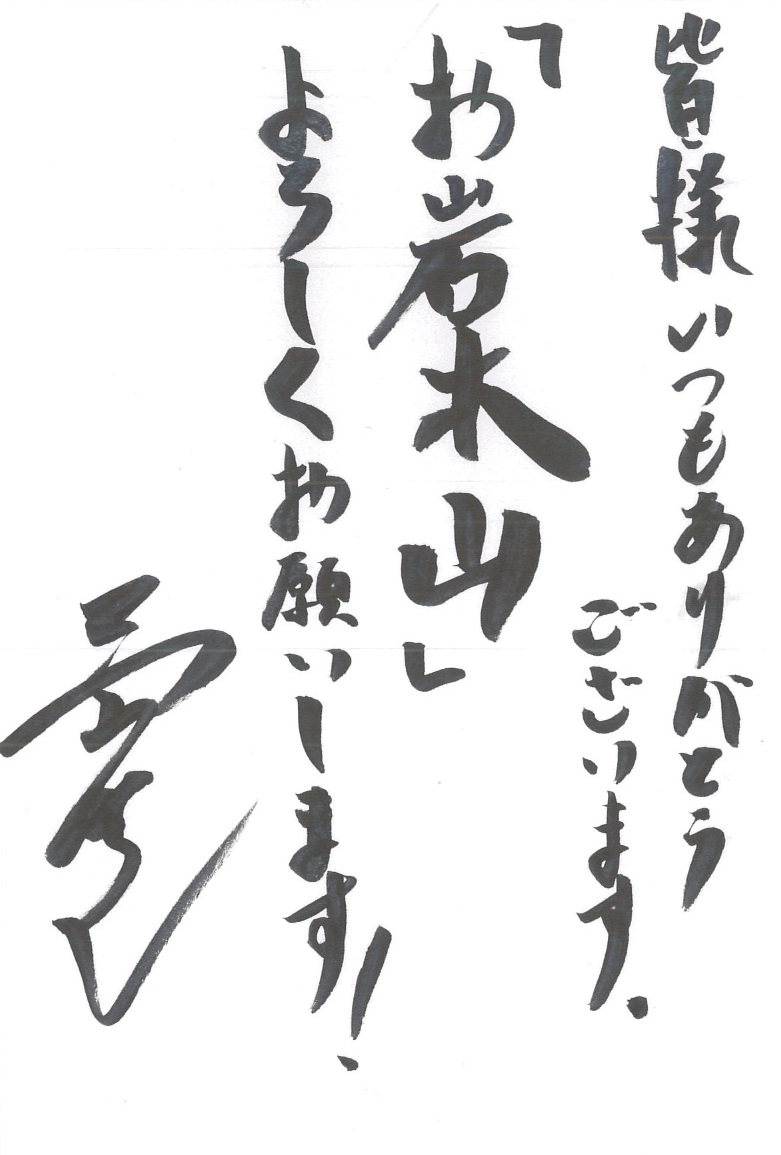 皆様いつもありがとう
ございます.
「お岩木山」
よろしくお願いします!